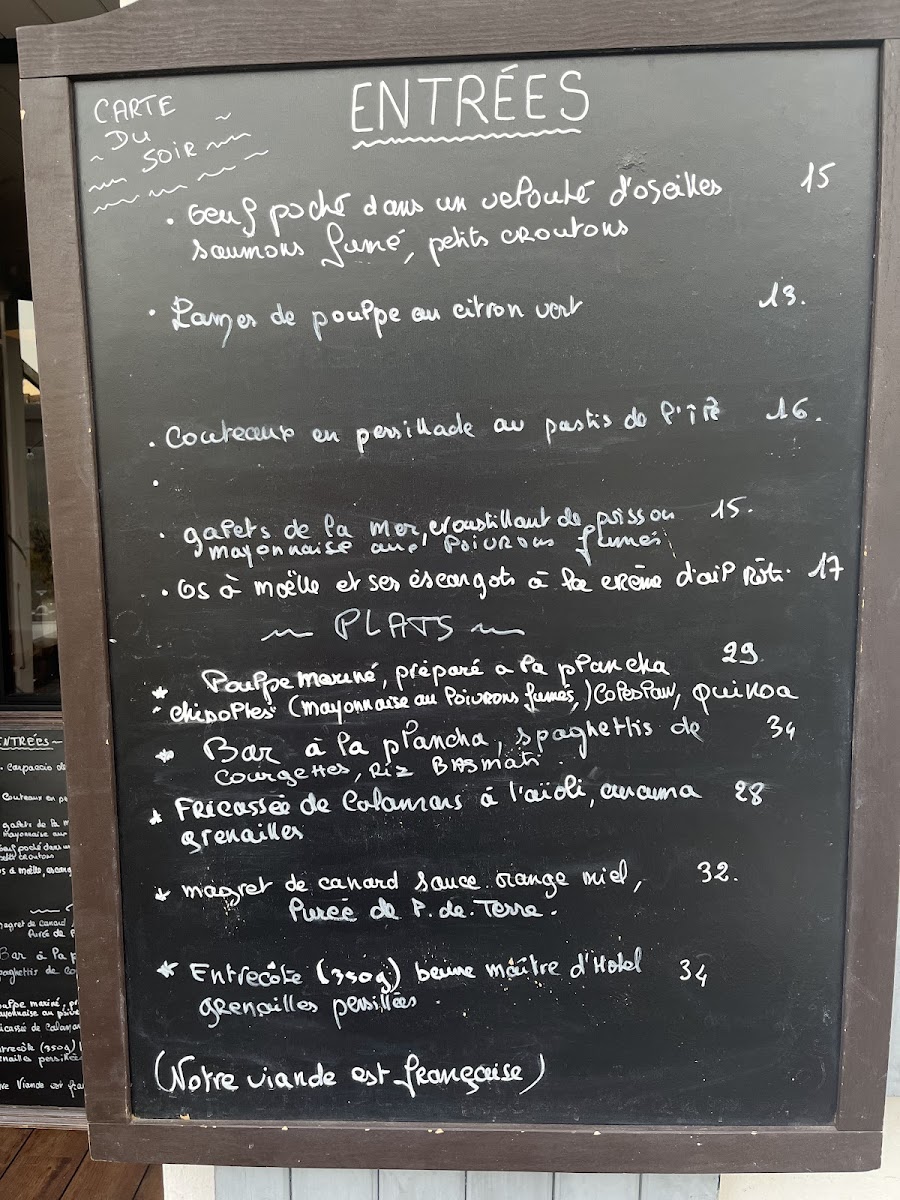 CARTE
DU
SOIR
ENTRÉES
. Oeuf poché dans un velouté d'oseilles 15
saumons fumé, petits croutons
. Lames de poulpe au citron vert 13.
. Couteaux en persillade au pastis de l'île 16.
.
. galets de la mer, croustillant de poisson 15.
mayonnaise aux Poivrons fumés
. Os à moëlle et ses escargots à la crème d'ail Rôti. 17
~ PLATS ~
* Poulpe mariné, préparé a la plancha 29
chipotles (mayonnaise au Poivrons fumés,) Coleslaw, quinoa
* Bar à la plancha, spaghettis de 34
courgettes, Riz BASmati.
* FRicassée de Calamars à l'aïoli, 28
grenailles
* magret de canard sauce orange miel, 32.
Purée de P. de. Terre.
* Entrecôte (350g) beurre maître d'Hotel 34
grenailles persillées.
(Notre viande est française)
ENTRÉES~
. Carpaccio de
Couteaux en pe
galets de la m
mayonnaise aux
oeuf poché dans u
petits croutons
s à moëlle, escarg
magret de Canard
Purée de P
Bar à la p
paghettis de co
oulpe mariné, p
ayonnaise au poiv
icassée de Calamar
trecôte (350g)
nailles persillée
re Viande est fra